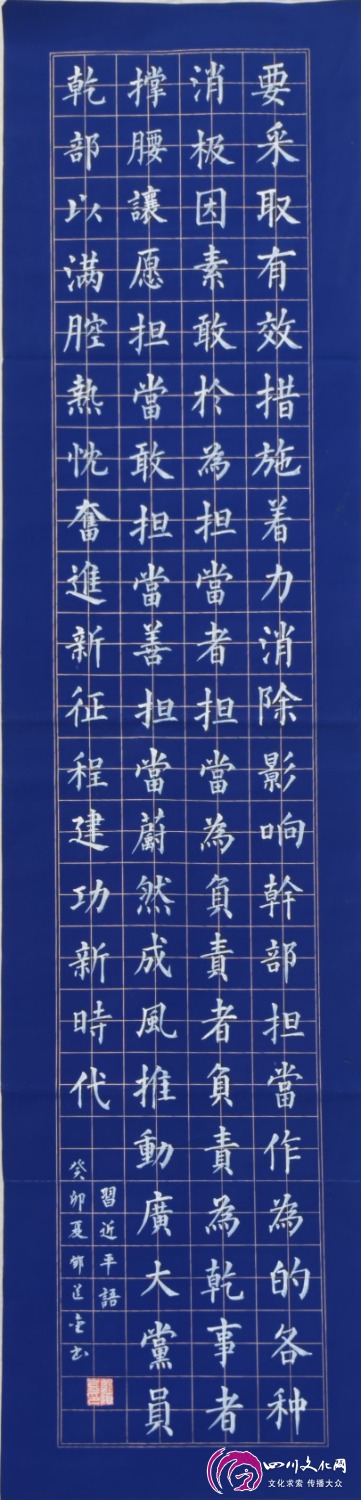 要采取有效措施着力消除影响幹部担當作為的各种
消极因素敢扵為担當者担當為負責者負責為乾事者
撑腰讓愿担當敢担當善担當蔚然成風推動廣大黨員
乾部以满腔熱忱奮進新征程建功新時代
習近平語
癸卯夏
四川文化网
文化求索 传播大众